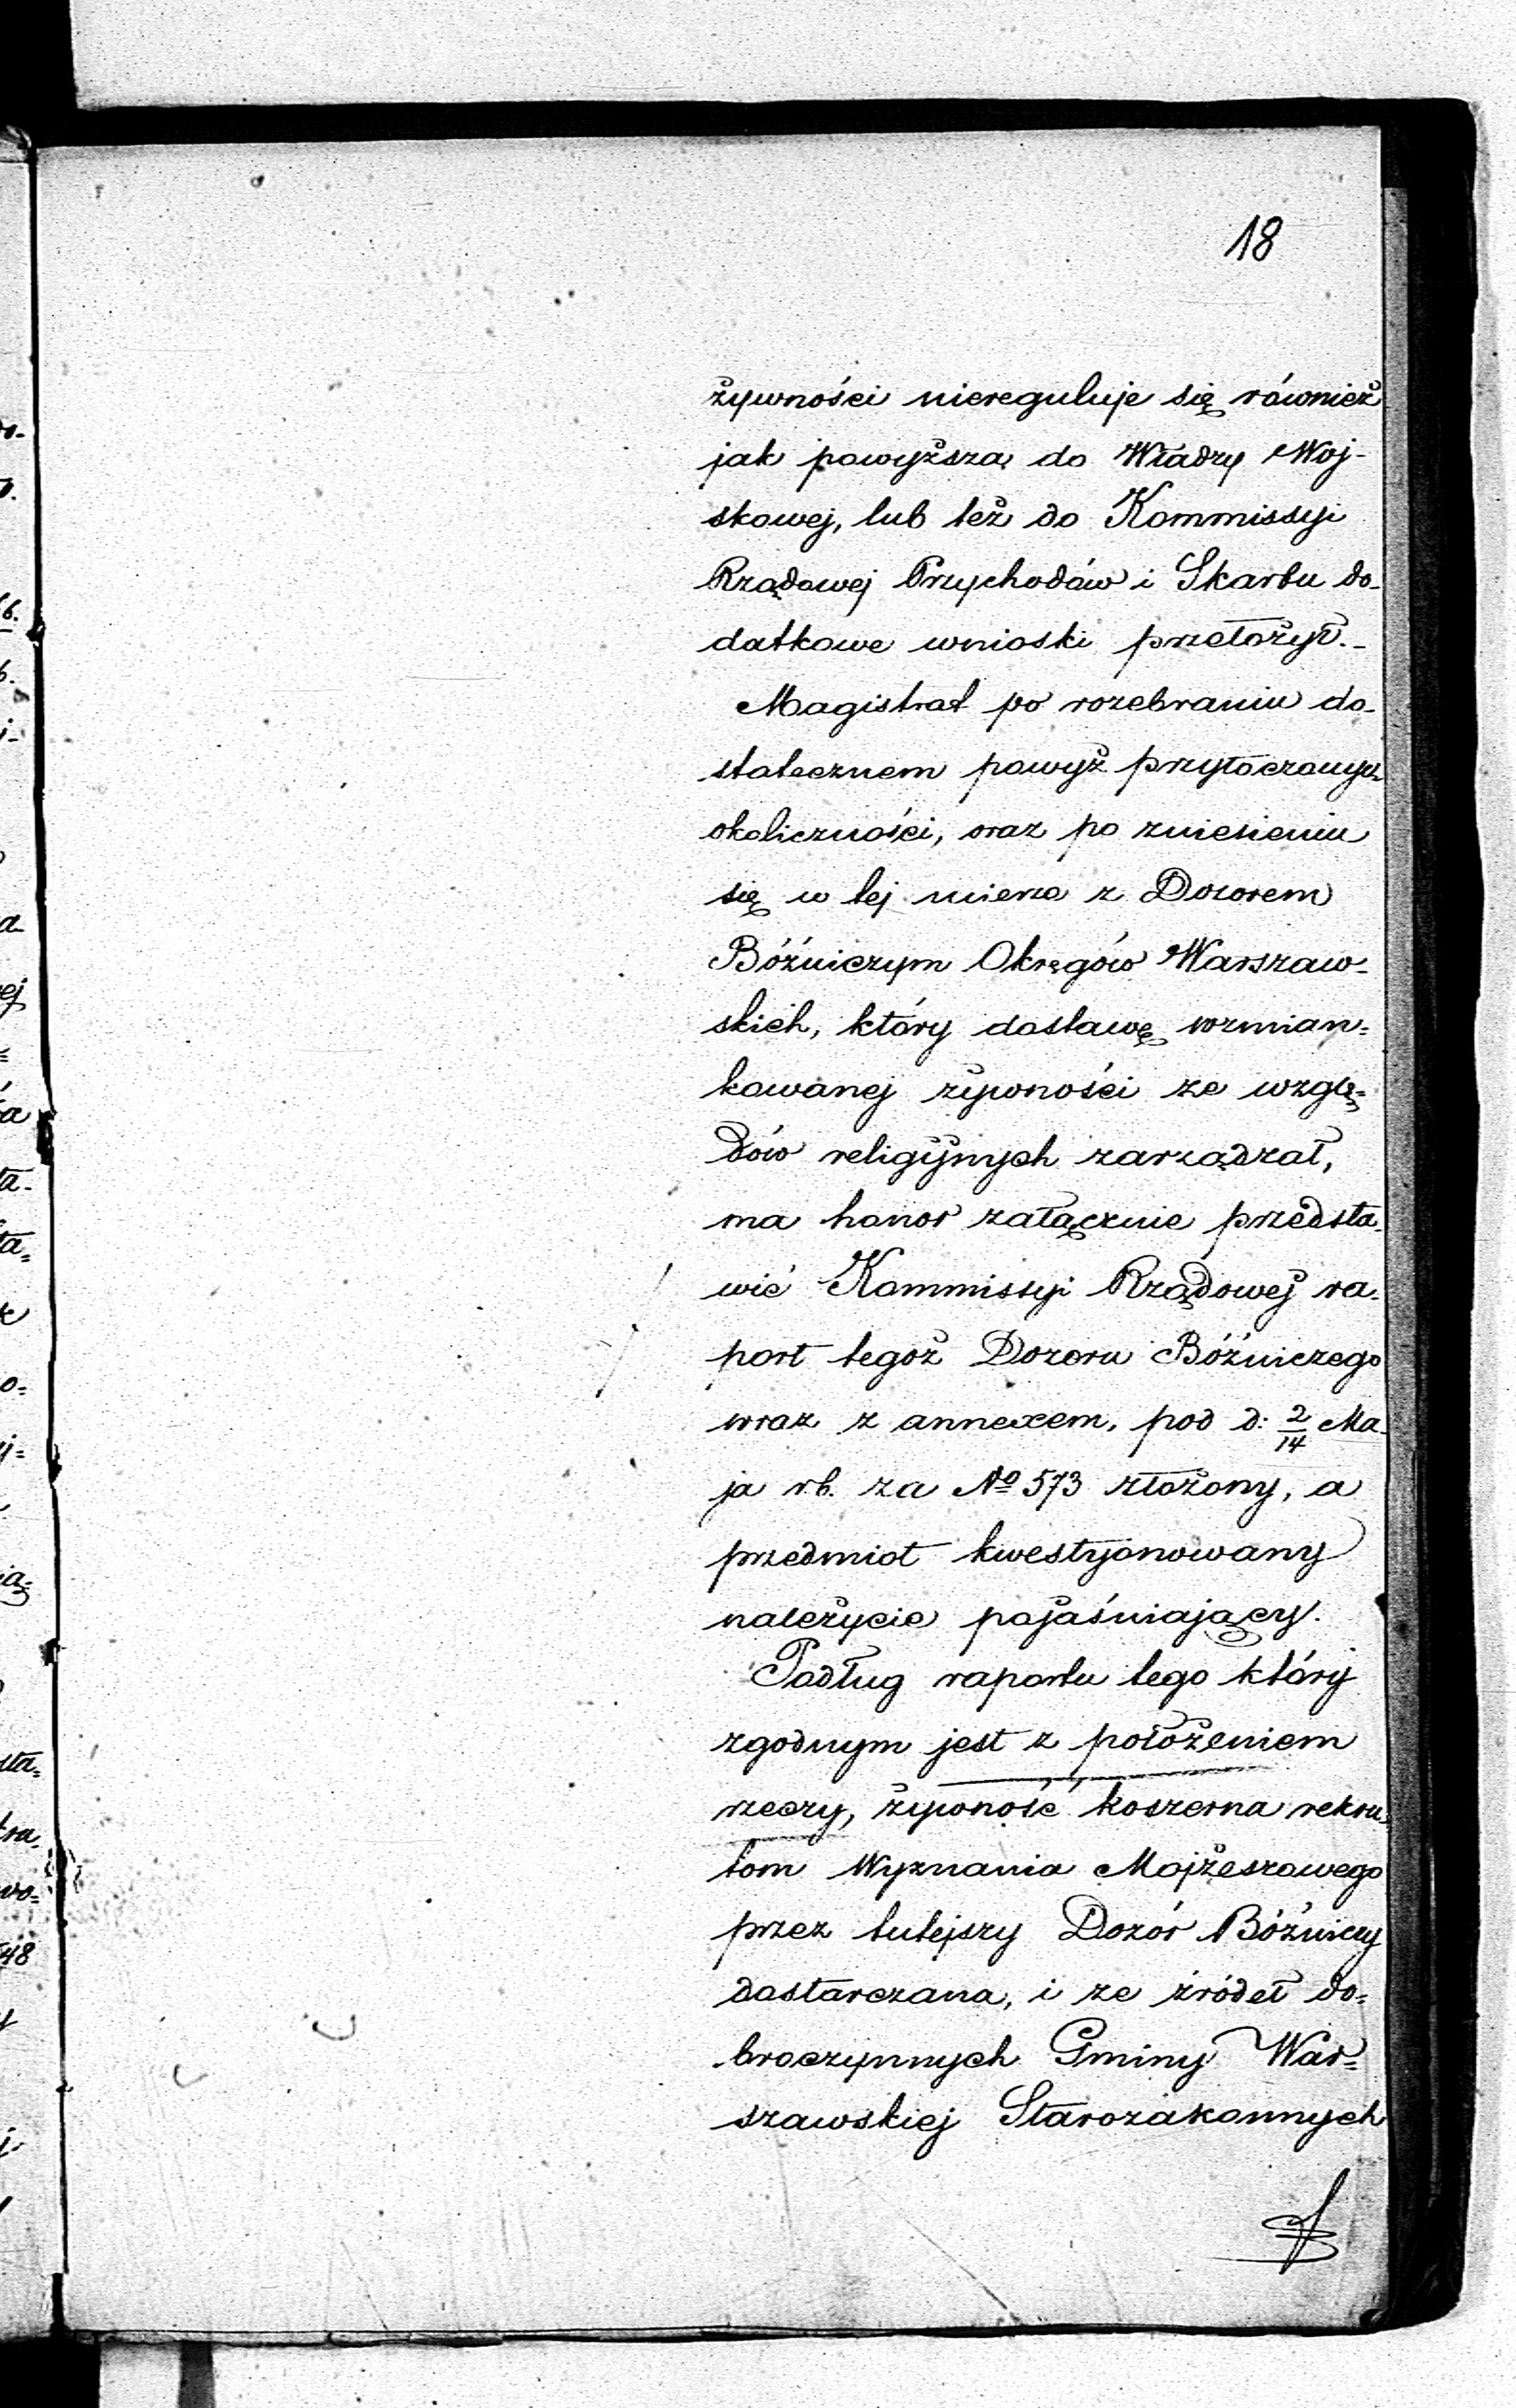 18
żywności niereguluje się również
jak powyższa do Władzy Woj-
skowej, lub też do Kommissyi
Rządowej Przychodów i Skarbu do-
datkowe wnioski przełożył.-
Magistrat po rozebraniu do-
statecznem powyż przytoczonych
okoliczności, oraz po zniesieniu
się w tej mierze z Dozorem
Bóźniczym Okręgów Warszaw-
skich, który dostawę wzmian=
kowanej żywności ze wzglę=
dów religijnych zarządzał,
ma honor załącznie przedsta-
wić Kommissyi Rządowej ra-
port tegoż Dozoru Bóźniczego
wraz z annexem, pod d: 2/14 Ma-
ja r.b. za No 573 złożony, a
przedmiot kwestyonowany
należycie pojaśniający.
Podług raportu tego który
zgodnym jest z położeniem
rzeczy, żywność koszerna rekru-
tom Wyznania Mojżeszowego
przez tutejszy Dozór Bóźniczy
dostarczana, i ze źródeł do=
broczynnych Gminy War=
szawskiej Starozakonnych